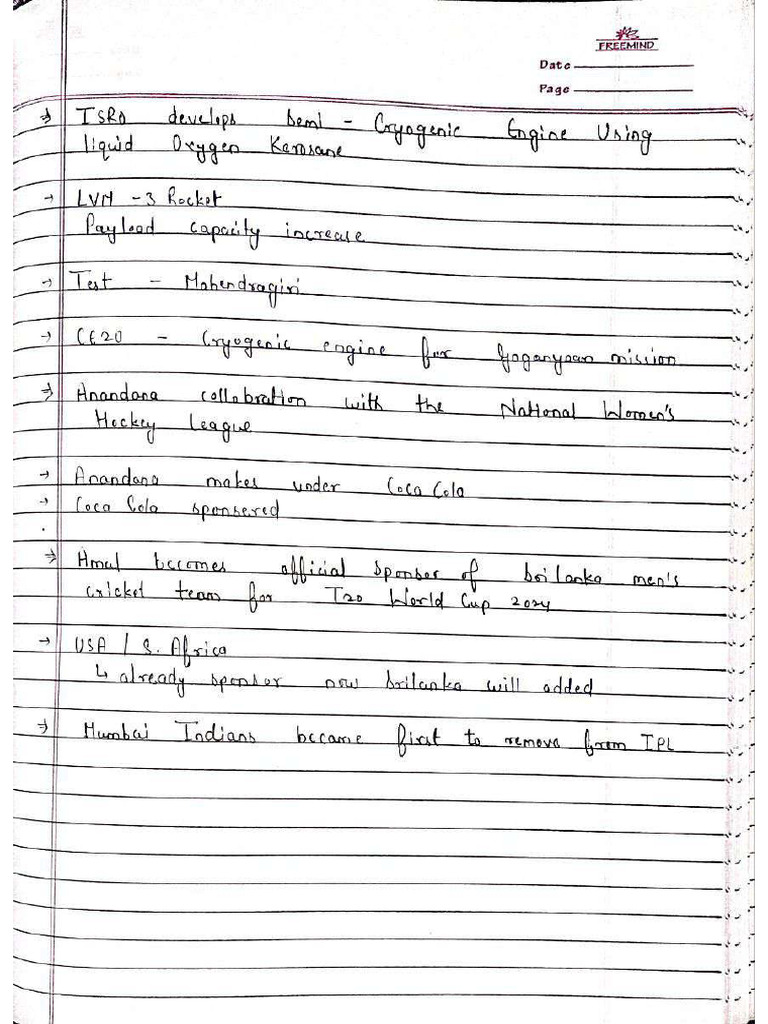 FREEMIND
Date
Page
⇒ ISRO develops Semi - Cryogenic Engine Using
liquid Oxygen Kerosane
→ LVM -3 Rocket
Payload capacity increase
→ Test - Mahendragiri
→ CE20 - Cryogenic engine for Gaganyaan mission
⇒ Anandana collabration with the National Women's
Hockey League
→ Anandana makes under Coca Cola
→ Coca Cola sponsered
⇒ Amul becomes official sponsor of Sri lanka men's
cricket team for T20 World Cup 2024
→ USA / S. Africa
↳ already sponsor now Srilanka will added
⇒ Mumbai Indians became first to remove from IPL